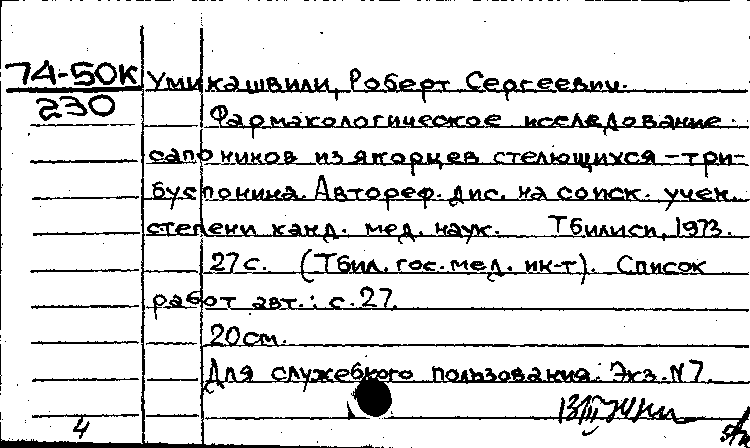 74-50К Умикашвили, Роберт Сергеевич.
230 Фармакологическое исследование
сапоников из якорцев стелющихся - три-
буспонина. Автореф. дис. на соиск. учен.
степени канд. мед. наук. Тбилиси, 1973.
27 с. (Тбил. гос. мед. ин-т). Список
работ авт.: с. 27.
20 см.
Для служебного пользования. Экз. N 7.
4